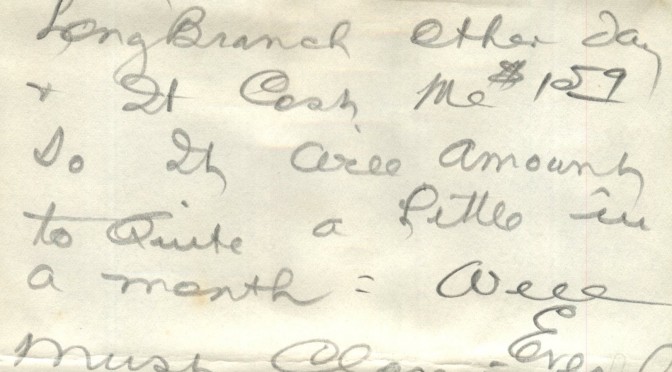 Long Branch other day
+ It Cost Me $1.59
So It Will amount
to Quite a little in
a month = Well
must Close - Ever